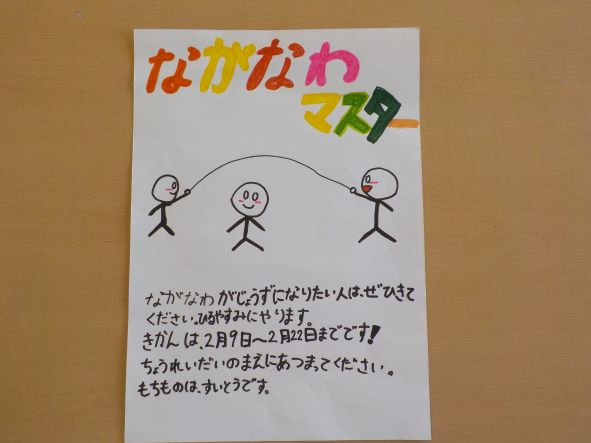 ながなわ
マスター
ながなわがじょうずになりたい人は、ぜひきて
ください。ひるやすみにやります。
きかんは、2月9日～2月22日までです!
ちょうれいだいのまえにあつまってください。
もちものは、すいとうです。